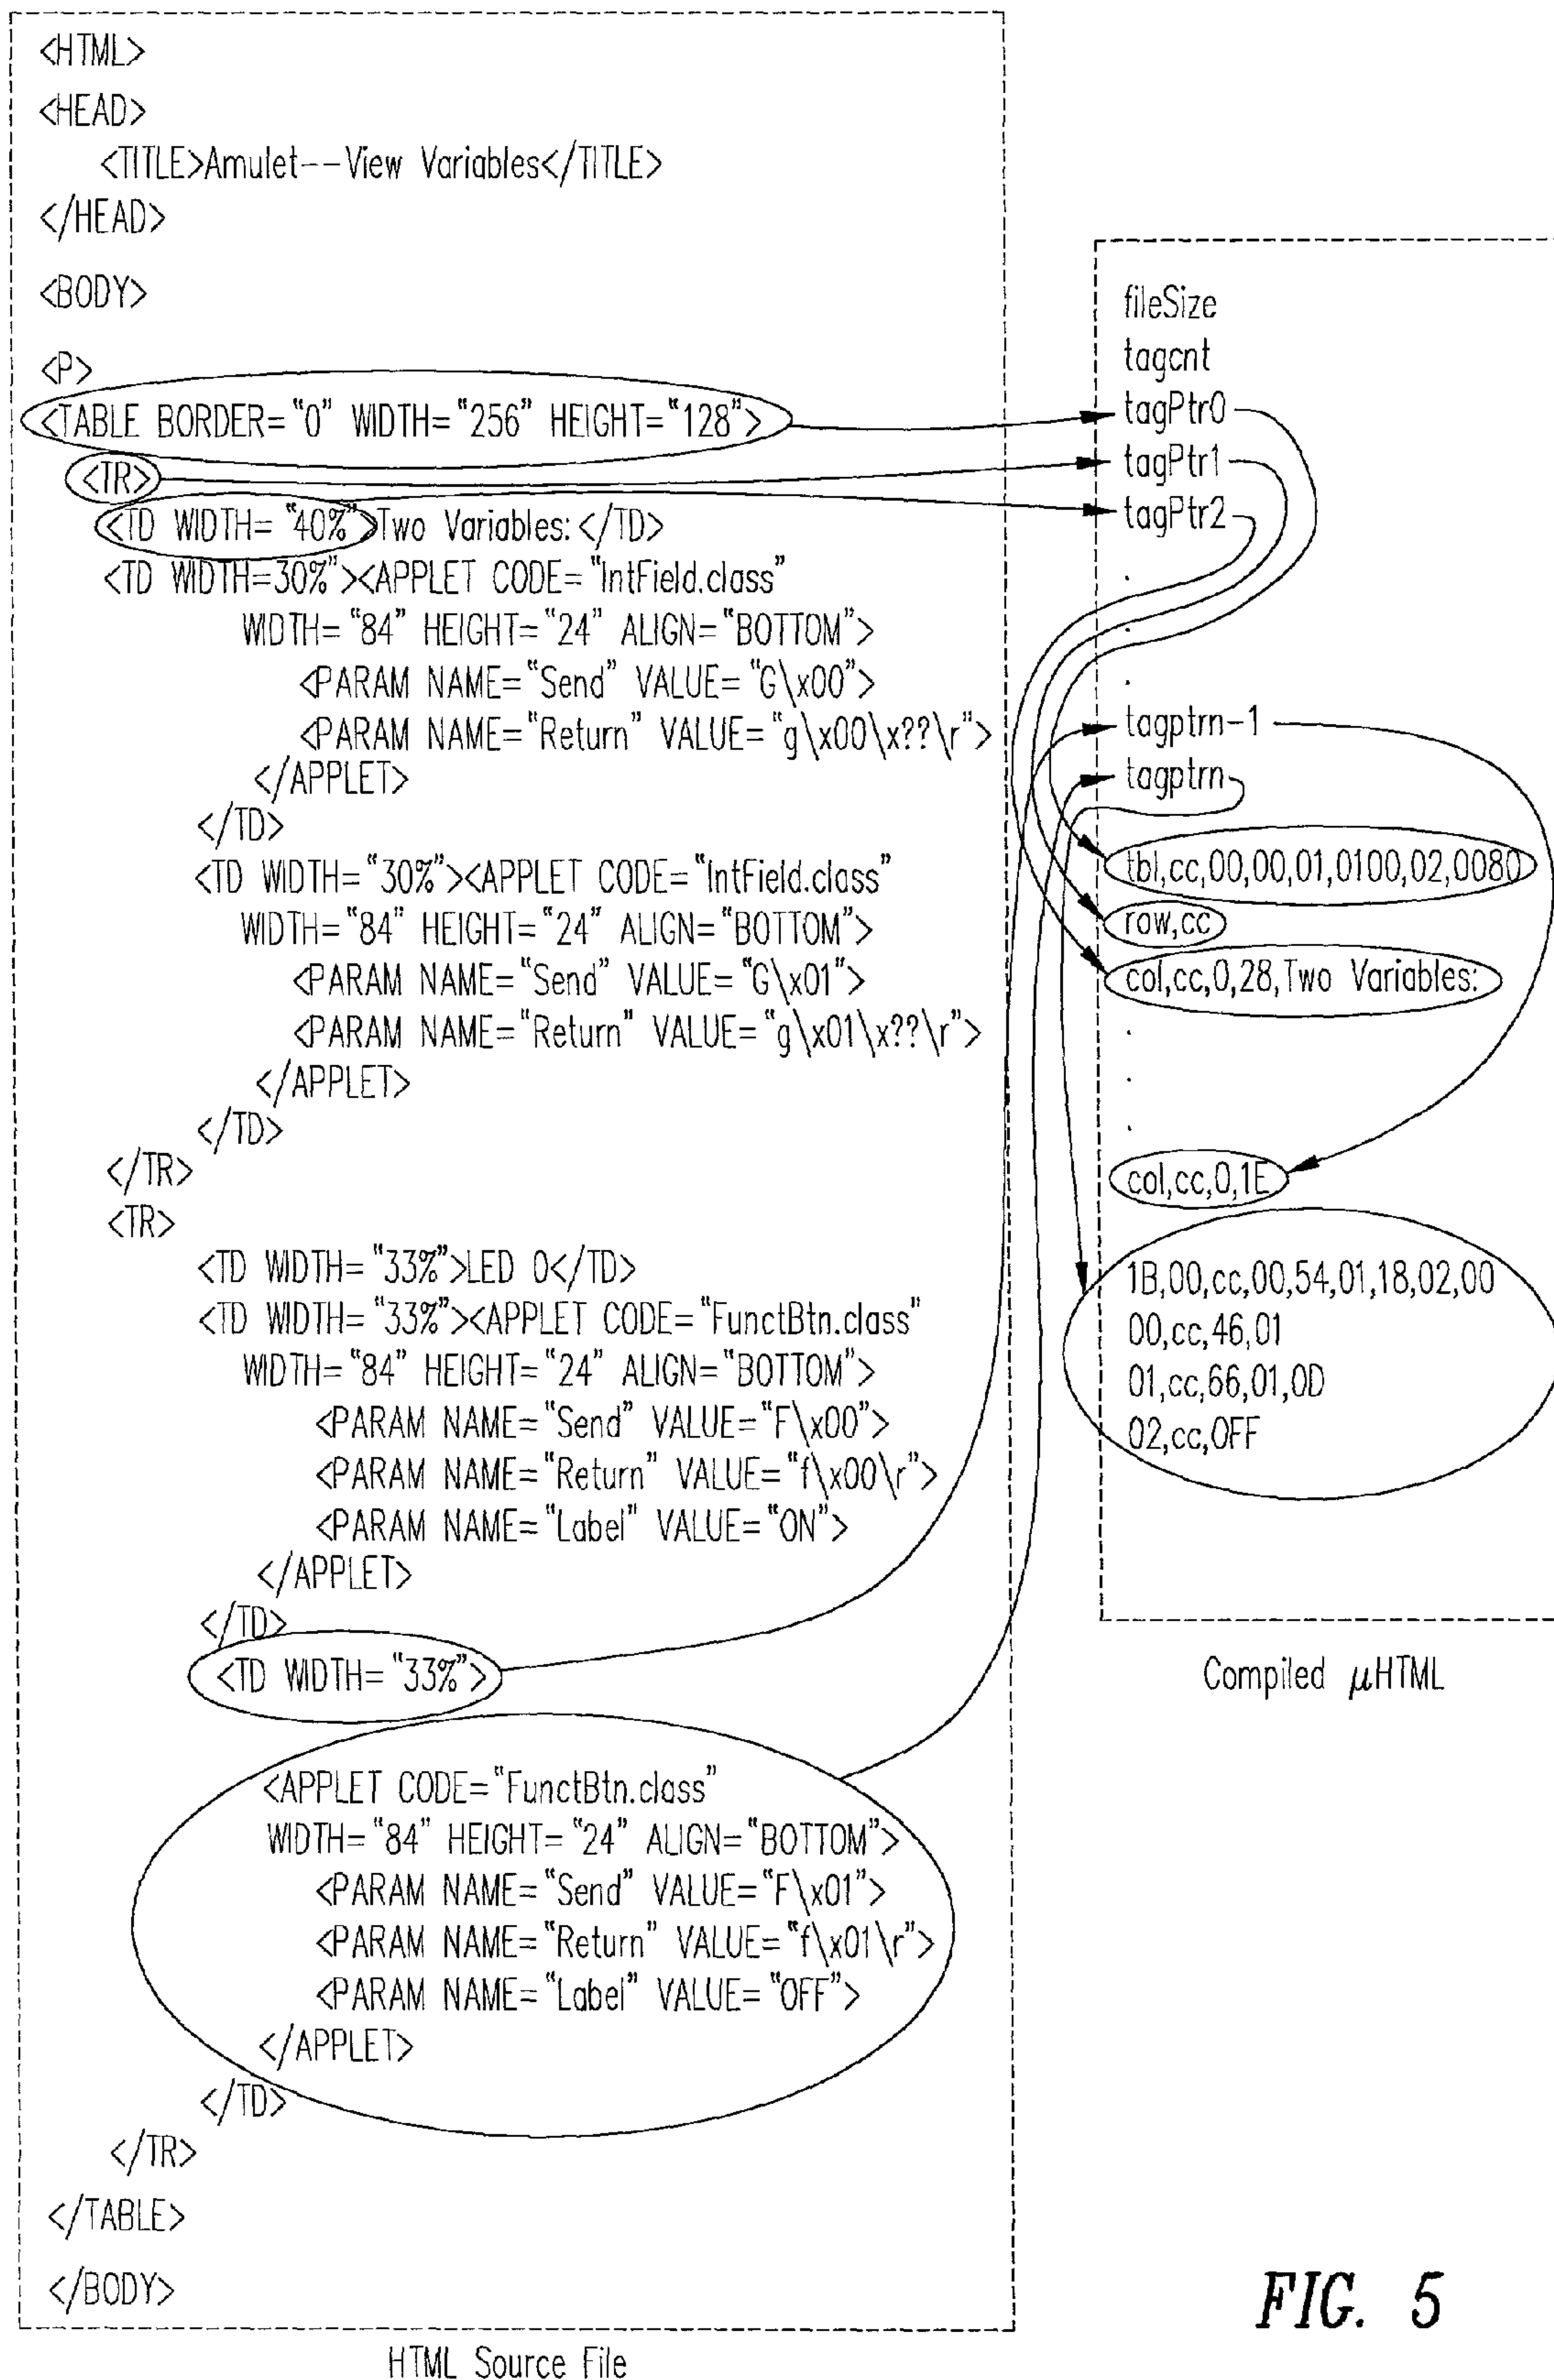 <HTML>
<HEAD>
<TITLE>Amulet--View Variables</TITLE>
</HEAD>
<BODY>
<P>
<TABLE BORDER="0" WIDTH="256" HEIGHT="128">
<TR>
<TD WIDTH="40%">Two Variables:</TD>
<TD WIDTH=30%"><APPLET CODE="IntField.class"
WIDTH="84" HEIGHT="24" ALIGN="BOTTOM">
<PARAM NAME="Send" VALUE="G\x00">
<PARAM NAME="Return" VALUE="g\x00\x??\r">
</APPLET>
</TD>
<TD WIDTH="30%"><APPLET CODE="IntField.class"
WIDTH="84" HEIGHT="24" ALIGN="BOTTOM">
<PARAM NAME="Send" VALUE="G\x01">
<PARAM NAME="Return" VALUE="g\x01\x??\r">
</APPLET>
</TD>
</TR>
<TR>
<TD WIDTH="33%">LED 0</TD>
<TD WIDTH="33%"><APPLET CODE="FunctBtn.class"
WIDTH="84" HEIGHT="24" ALIGN="BOTTOM">
<PARAM NAME="Send" VALUE="F\x00">
<PARAM NAME="Return" VALUE="f\x00\r">
<PARAM NAME="Label" VALUE="ON">
</APPLET>
</TD>
<TD WIDTH="33%">
<APPLET CODE="FunctBtn.class"
WIDTH="84" HEIGHT="24" ALIGN="BOTTOM">
<PARAM NAME="Send" VALUE="F\x01">
<PARAM NAME="Return" VALUE="f\x01\r">
<PARAM NAME="Label" VALUE="OFF">
</APPLET>
</TD>
</TR>
</TABLE>
</BODY>
HTML Source File
fileSize
tagcnt
tagPtr0
tagPtr1
tagPtr2
.
.
.
tagptrn-1
tagptrn
tbl,cc,00,00,01,0100,02,0080
row,cc
col,cc,0,28,Two Variables:
.
.
.
col,cc,0,1E
1B,00,cc,00,54,01,18,02,00
00,cc,46,01
01,cc,66,01,0D
02,cc,OFF
Compiled μHTML
FIG. 5